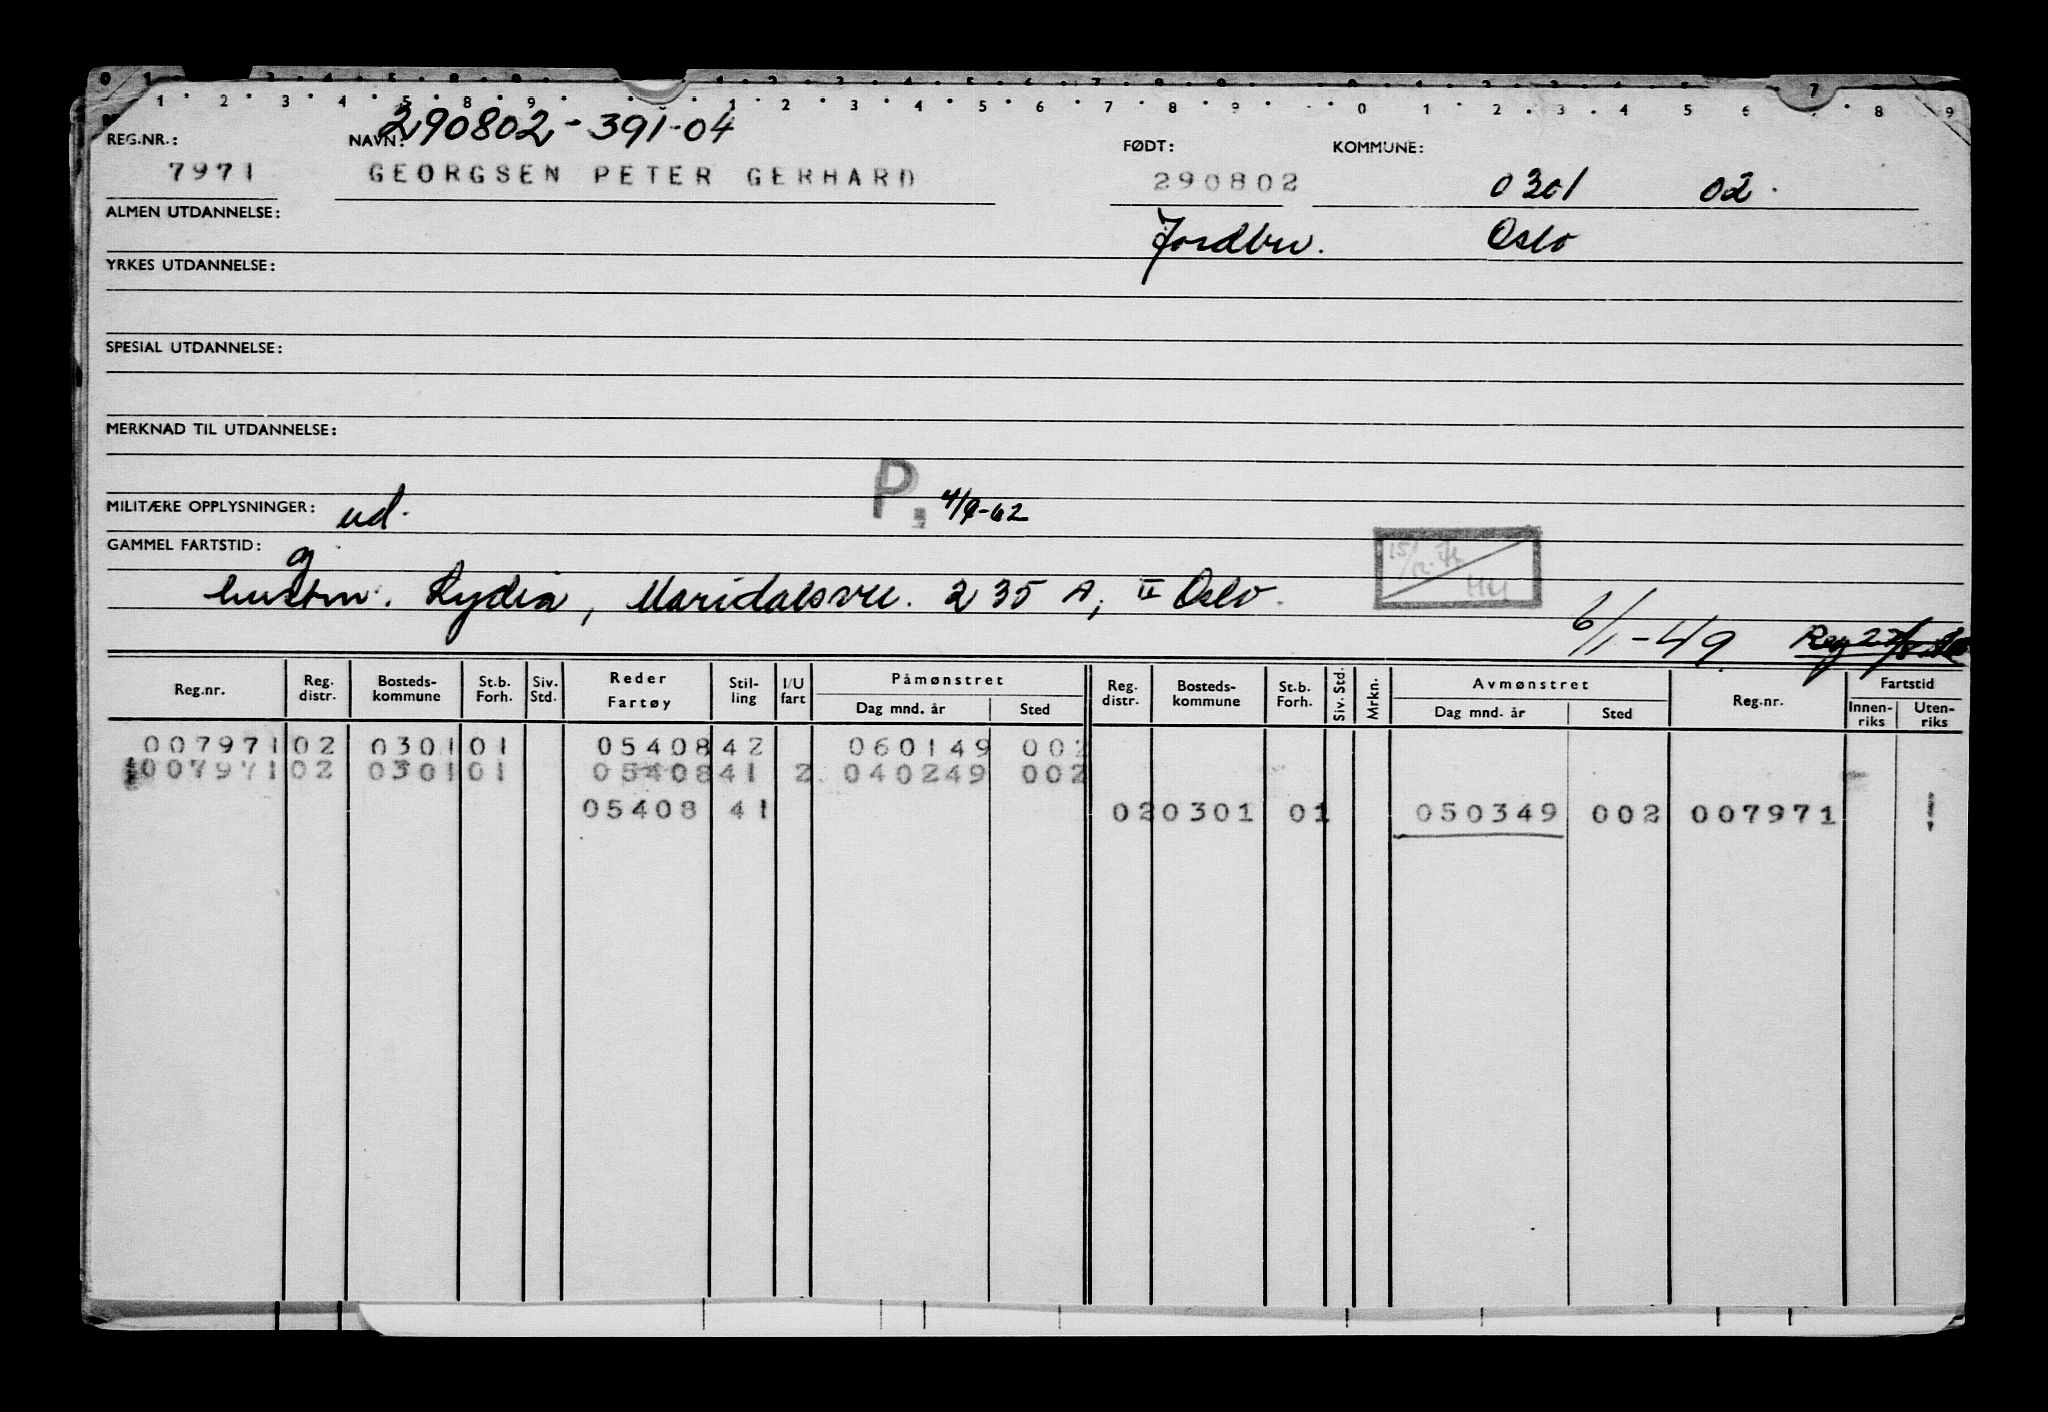 290802-391-04
REG.NR.: NAVN: FØDT: KOMMUNE:
7971 GEORGSEN PETER GERHARD 290802 0301 02.
ALMEN UTDANNELSE: Jordbr. Oslo
YRKES UTDANNELSE:
SPESIAL UTDANNELSE:
MERKNAD TIL UTDANNELSE:
MILITÆRE OPPLYSNINGER: ud. P, 4/9-62
GAMMEL FARTSTID: g
hustru. Lydia, Maridalsvn. 235 A, II Oslo.
6/1-49.
Reg.nr. Reg. distr. Bosteds-kommune St.b. Forh. Siv. Std. Reder Fartøy Stil-ling I/U fart Påmønstret Dag mnd. år Sted Reg. distr. Bosteds-kommune St.b. Forh. Siv. Std. Mrkn. Avmønstret Dag mnd. år Sted Reg.nr. Fartstid Innen-riks Uten-riks
007971 02 0301 01 05408 42 060149 002
007971 02 0301 01 05408 41 2 040249 002
05408 41 02 0301 01 050349 002 007971